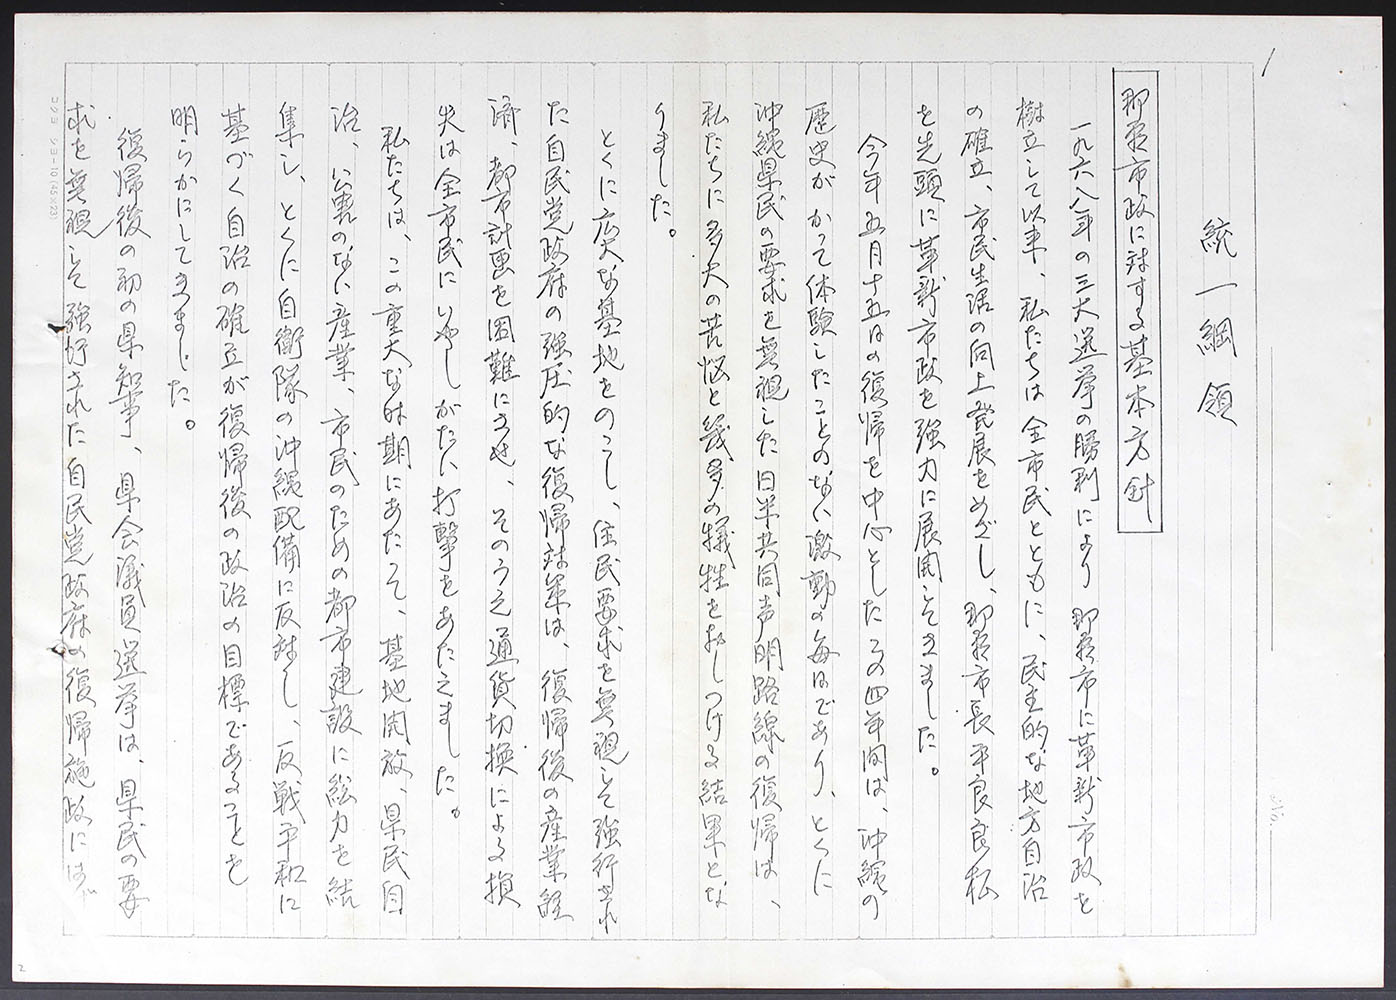 1
統一綱領
那覇市政に対する基本方針
一九六八年の三大選挙の勝利により那覇市に革新市政を
樹立して以来、私たちは全市民とともに、民主的な地方自治
の確立、市民生活の向上発展をめざし、那覇市長平良良松
を先頭に革新市政を強力に展開してきました。
今年五月十五日の復帰を中心としたこの四年間は、沖縄の
歴史がかつて体験したことのない激動の毎日であり、とくに
沖縄県民の要求を無視した日米共同声明路線の復帰は、
私たちに多大の苦悩と幾多の犠牲をおしつける結果とな
りました。
とくに広大な基地をのこし、住民要求を無視して強行され
た自民党政府の強圧的な復帰対策は、復帰後の産業経
済、都市計画を困難にさせ、そのうえ通貨切換による損
失は全市民にいやしがたい打撃をあたえました。
私たちは、この重大な時期にあたって、基地開放、県民自
治、公害のない産業、市民のための都市建設に総力を結
集し、とくに自衛隊の沖縄配備に反対し、反戦平和に
基づく自治の確立が復帰後の政治の目標であることを
明らかにしてきました。
復帰後の初の県知事、県会議員選挙は、県民の要
求を無視して強行された自民党政府の復帰施政にはげ
コクヨ シヨー10 (45×23)
No.
2